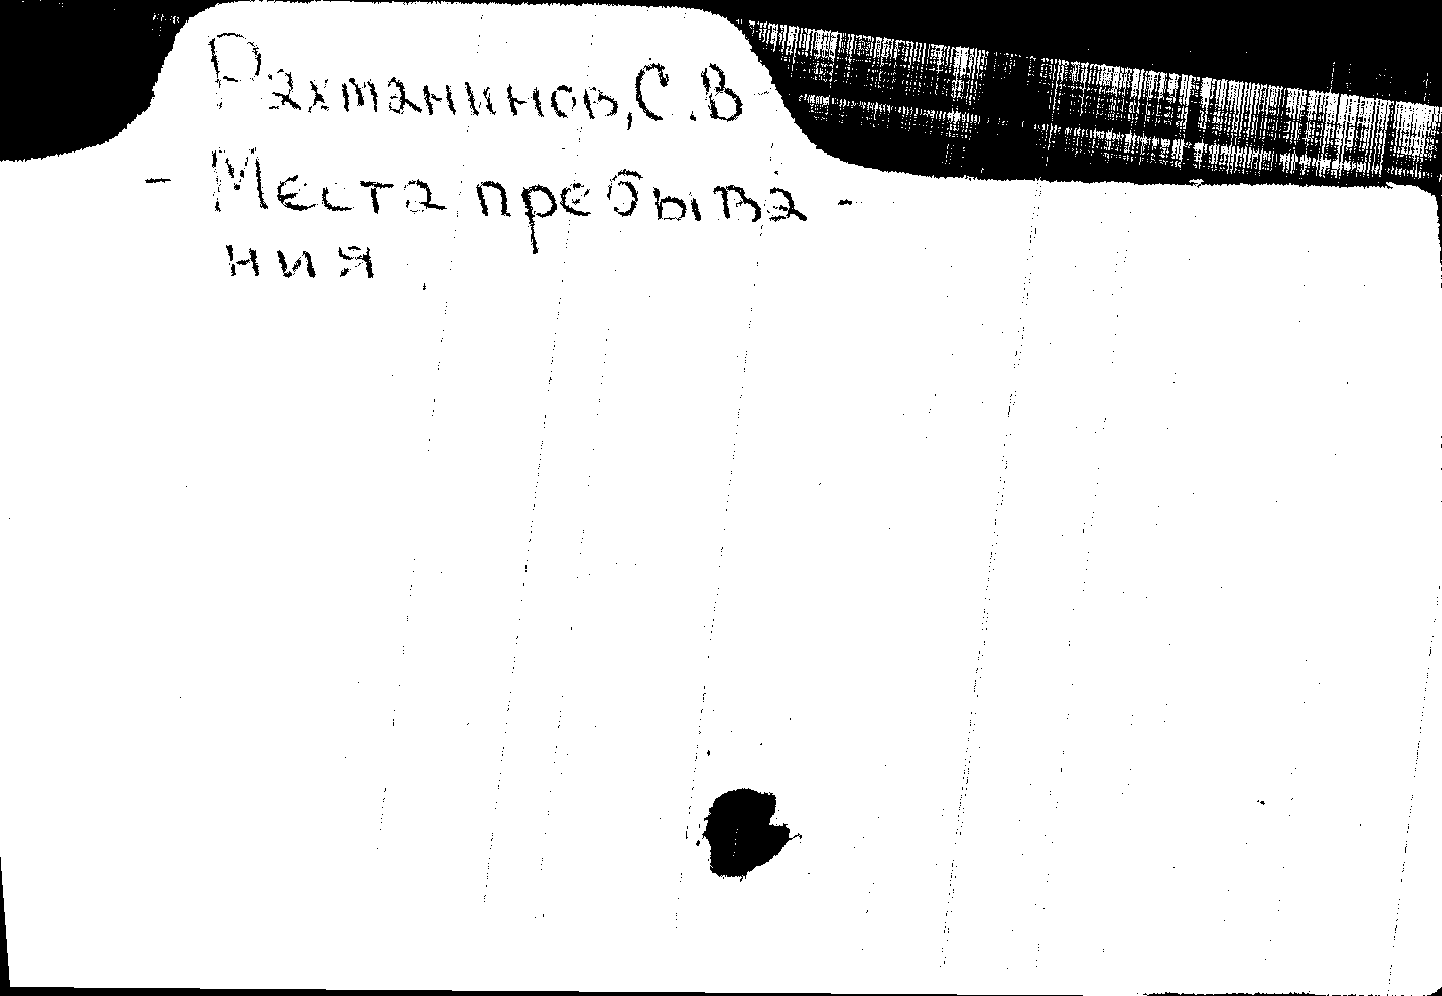 Рахманинов, С. В
- Места пребыва -
ния